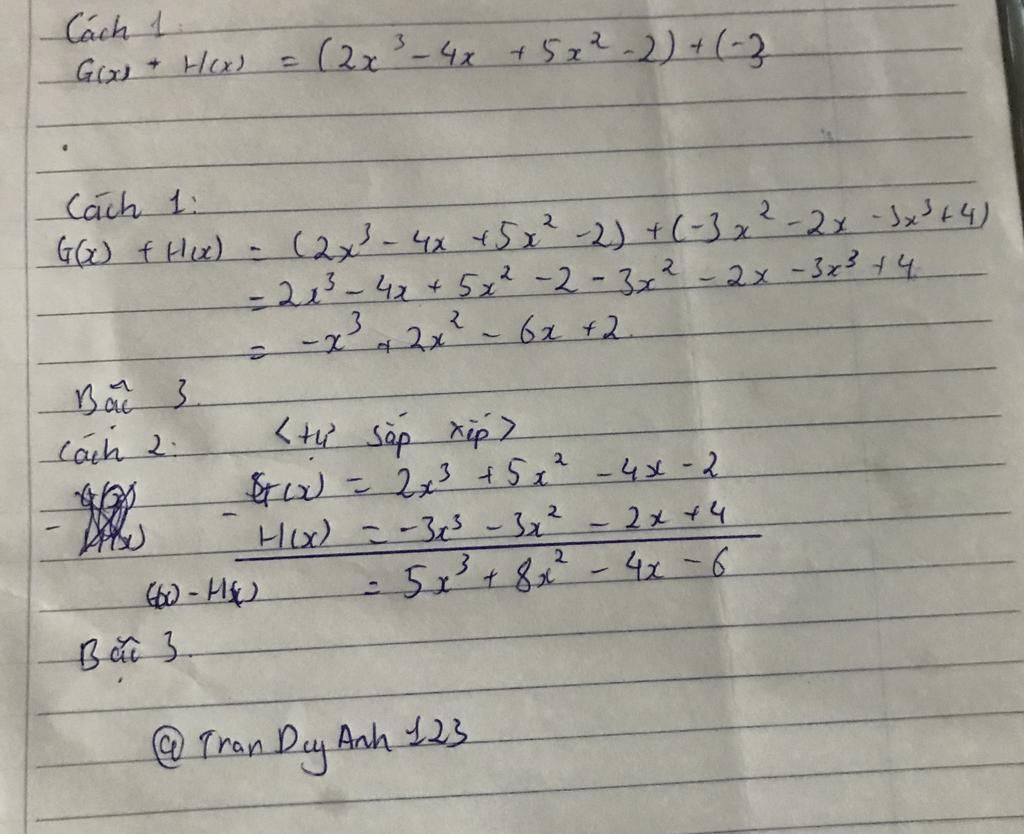 Cách 1
G(x) + H(x) = (2x³ - 4x + 5x² - 2) + (-3
Cách 1:
G(x) + H(x) = (2x³ - 4x + 5x² - 2) + (-3x² - 2x - 3x³ + 4)
= 2x³ - 4x + 5x² - 2 - 3x² - 2x - 3x³ + 4
= -x³ + 2x² - 6x + 2.
Bậc 3.
Cách 2: <tự sắp xếp>
- G(x) = 2x³ + 5x² - 4x - 2
H(x) = -3x³ - 3x² - 2x + 4
G(x) - H(x) = 5x³ + 8x² - 4x - 6
Bậc 3.
@ Tran Duy Anh 123